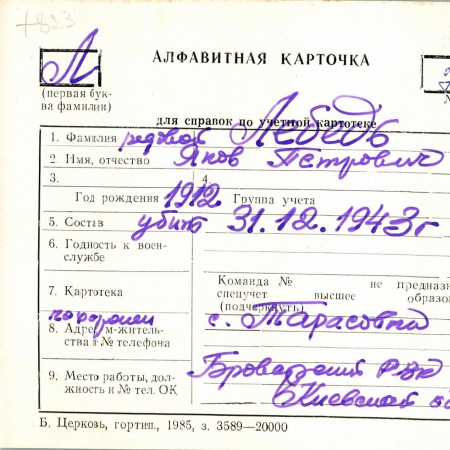 +823
АЛФАВИТНАЯ КАРТОЧКА
Л
(первая бук-
ва фамилии)
для справок по учетной картотеке
1. Фамилия рядовой Лебедь
2. Имя, отчество Яков Петрович
3. 4.
Год рождения 1912 Группа учета
5. Состав убит 31.12.1943 г
6. Годность к воен-
службе
Команда № не предназн
7. Картотека спецучет высшее образо
(подчеркнуть)
похоронен с. Тарасовка
8. Адрес м-житель-
ства и № телефона
Броварский РВК
9. Место работы, дол-
жность и № тел. ОК Киевской о
Б. Церковь, гортип., 1985, з. 3589—20000